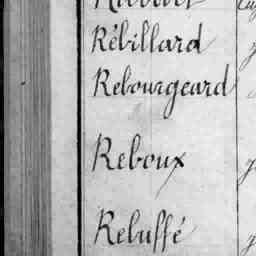 Rébillard
Rebourgeard
Reboux
Rebuffé